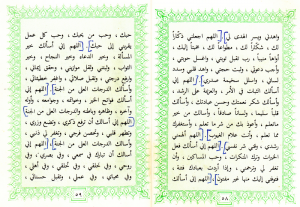 واهدني ويسر الهدى لي [اللهم اجعلني ذكّاراً
لك ، شكّاراً لك ، مطواعاً لك ، مخبتاً إليك ،
أوّاهاً منيباً ، رب تقبل توبتي ، واغسل حوبتي ،
وأجب دعوتي ، وثبت حجتي ، واهد قلبي وسدد
لساني ، واسلل سخيمة صدري [اللهم إني
أسألك الثبات في الأمر ، والعزيمة على الرشد ،
وأسألك شكر نعمتك وحسن عبادتك ، وأسألك
قلباً سليماً ، ولساناً صادقاً ، وأسألك من خير
ما تعلم ، وأعوذ بك من شر ما تعلم ، وأستغفرك
مما تعلم ، وأنت علام الغيوب [اللهم ألهمني
رشدي ، وقني شر نفسي [اللهم إني أسألك فعل
الخيرات وترك المنكرات ، وحب المساكين ، وأن
تغفر لي وترحمني ، وإذا أردت بعبادك فتنة
فتوفني إليك منها غير مفتون [اللهم إني أسألك
٥٨
حبك ، وحب من يحبك ، وحب كل عمل
يقربني إلى حبك [اللهم إني أسألك خير
المسألة ، وخير الدعاء وخير النجاح ، وخير
الثواب ، وثبتني وثقل موازيني ، وحقق إيماني ،
وارفع درجتي ، وتقبل صلاتي ، واغفر خطيئاتي ،
وأسألك الدرجات العلى من الجنة [اللهم إني
أسألك فواتح الخير ، وخواتمه ، وجوامعه ، وأوله
وآخره ، وظاهره وباطنه والدرجات العلى من الجنة
[اللهم إني أسألك أن ترفع ذكري ، وتضع وزري ،
وتطهر قلبي ، وتحصن فرجي ، وتغفر لي ذنبي ،
وأسألك أن تبارك في سمعي ، وفي بصري ، وفي
روحي ، وفي خلقي ، وفي خلقي ، وفي أهلي ،
وفي محياي ، وفي عملي ، وتقبل حسناتي ،
٥٩